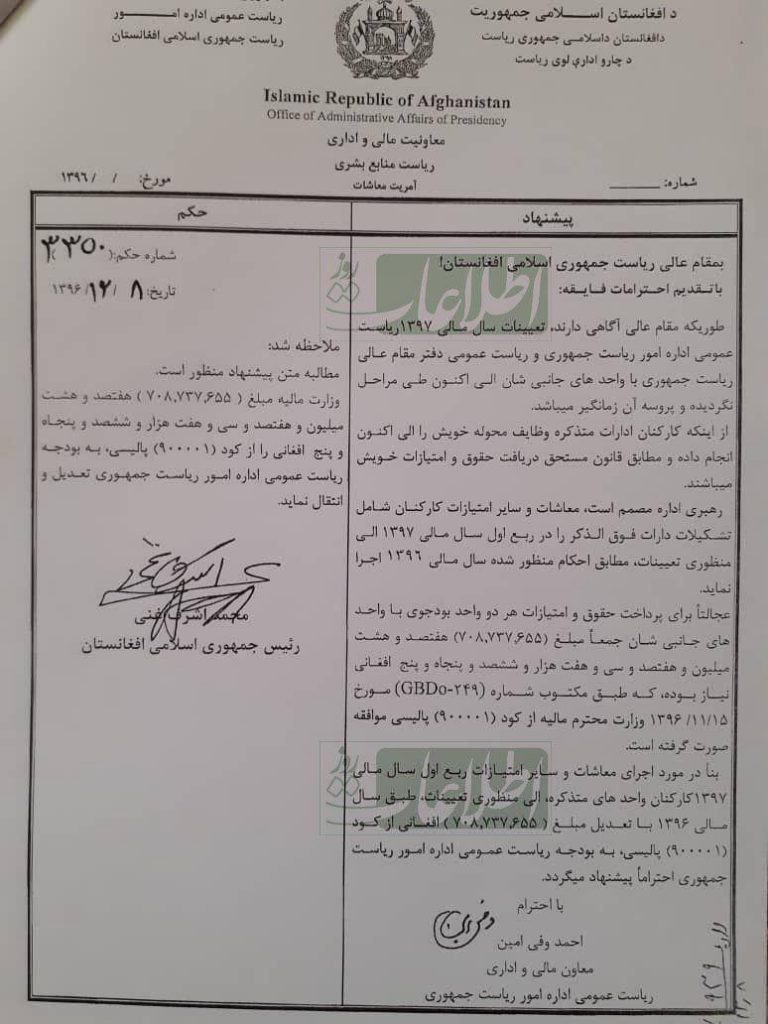 د افغانستان اسلامی جمهوریت
دافغانستان داسلامی جمهوری ریاست
د چارو اداري لوی ریاست
ریاست عمومی اداره امور
ریاست جمهوری اسلامی افغانستان
Islamic Republic of Afghanistan
Office of Administrative Affairs of Presidency
معاونیت مالی و اداری
ریاست منابع بشری
آمریت معاشات
شماره:
مورخ: / / ۱۳۹۶
پیشنهاد
بمقام عالی ریاست جمهوری اسلامی افغانستان!
با تقدیم احترامات فایقه:
طوریکه مقام عالی آگاهی دارند، تعیینات سال مالی ۱۳۹۷ریاست
عمومی اداره امور ریاست جمهوری و ریاست عمومی دفتر مقام عالی
ریاست جمهوری با واحد های جانبی شان الی اکنون طی مراحل
نگردیده و پروسه آن زمانگیر میباشد.
از اینکه کارکنان ادارات متذکره وظایف محوله خویش را الی اکنون
انجام داده و مطابق قانون مستحق دریافت حقوق و امتیازات خویش
میباشند.
رهبری اداره مصمم است، معاشات و سایر امتیازات کارکنان شامل
تشکیلات دارات فوق الذکر را در ربع اول سال مالی ۱۳۹۷ الی
منظوری تعیینات، مطابق احکام منظور شده سال مالی ۱۳۹۶ اجرا
نماید.
عجالتاً برای پرداخت حقوق و امتیازات هر دو واحد بودجوی با واحد
های جانبی شان جمعاً مبلغ (۷۰۸,۷۳۷,۶۵۵) هفتصد و هشت
میلیون و هفتصد و سی و هفت هزار و ششصد و پنجاه و پنج افغانی
نیاز بوده، که طبق مکتوب شماره (GBDo-۲۴۹) مورخ
۱۳۹۶/۱۱/۱۵ وزارت محترم مالیه از کود (۹۰۰۰۰۱) پالیسی موافقه
صورت گرفته است.
بناً در مورد اجرای معاشات و سایر امتیازات ربع اول سال مالی
۱۳۹۷کارکنان واحد های متذکره، الی منظوری تعیینات، طبق سال
مالی ۱۳۹۶ با تعدیل مبلغ ( ۷۰۸,۷۳۷,۶۵۵ ) افغانی از کود
(۹۰۰۰۰۱) پالیسی، به بودجه ریاست عمومی اداره امور ریاست
جمهوری احتراماً پیشنهاد میگردد.
با احترام
احمد وفی امین
معاون مالی و اداری
ریاست عمومی اداره امور ریاست جمهوری
حکم
شماره حکم:( ۳۳۵۰
تاریخ: ۸ / ۱۲ / ۱۳۹۶
ملاحظه شد:
مطالبه متن پیشنهاد منظور است.
وزارت مالیه مبلغ ( ۷۰۸,۷۳۷,۶۵۵ ) هفتصد و هشت
میلیون و هفتصد و سی و هفت هزار و ششصد و پنجاه
و پنج افغانی را از کود (۹۰۰۰۰۱) پالیسی، به بودجه
ریاست عمومی اداره امور ریاست جمهوری تعدیل و
انتقال نماید.
محمد اشرف غنی
رئیس جمهوری اسلامی افغانستان
اطلاعات روز
اطلاعات روز